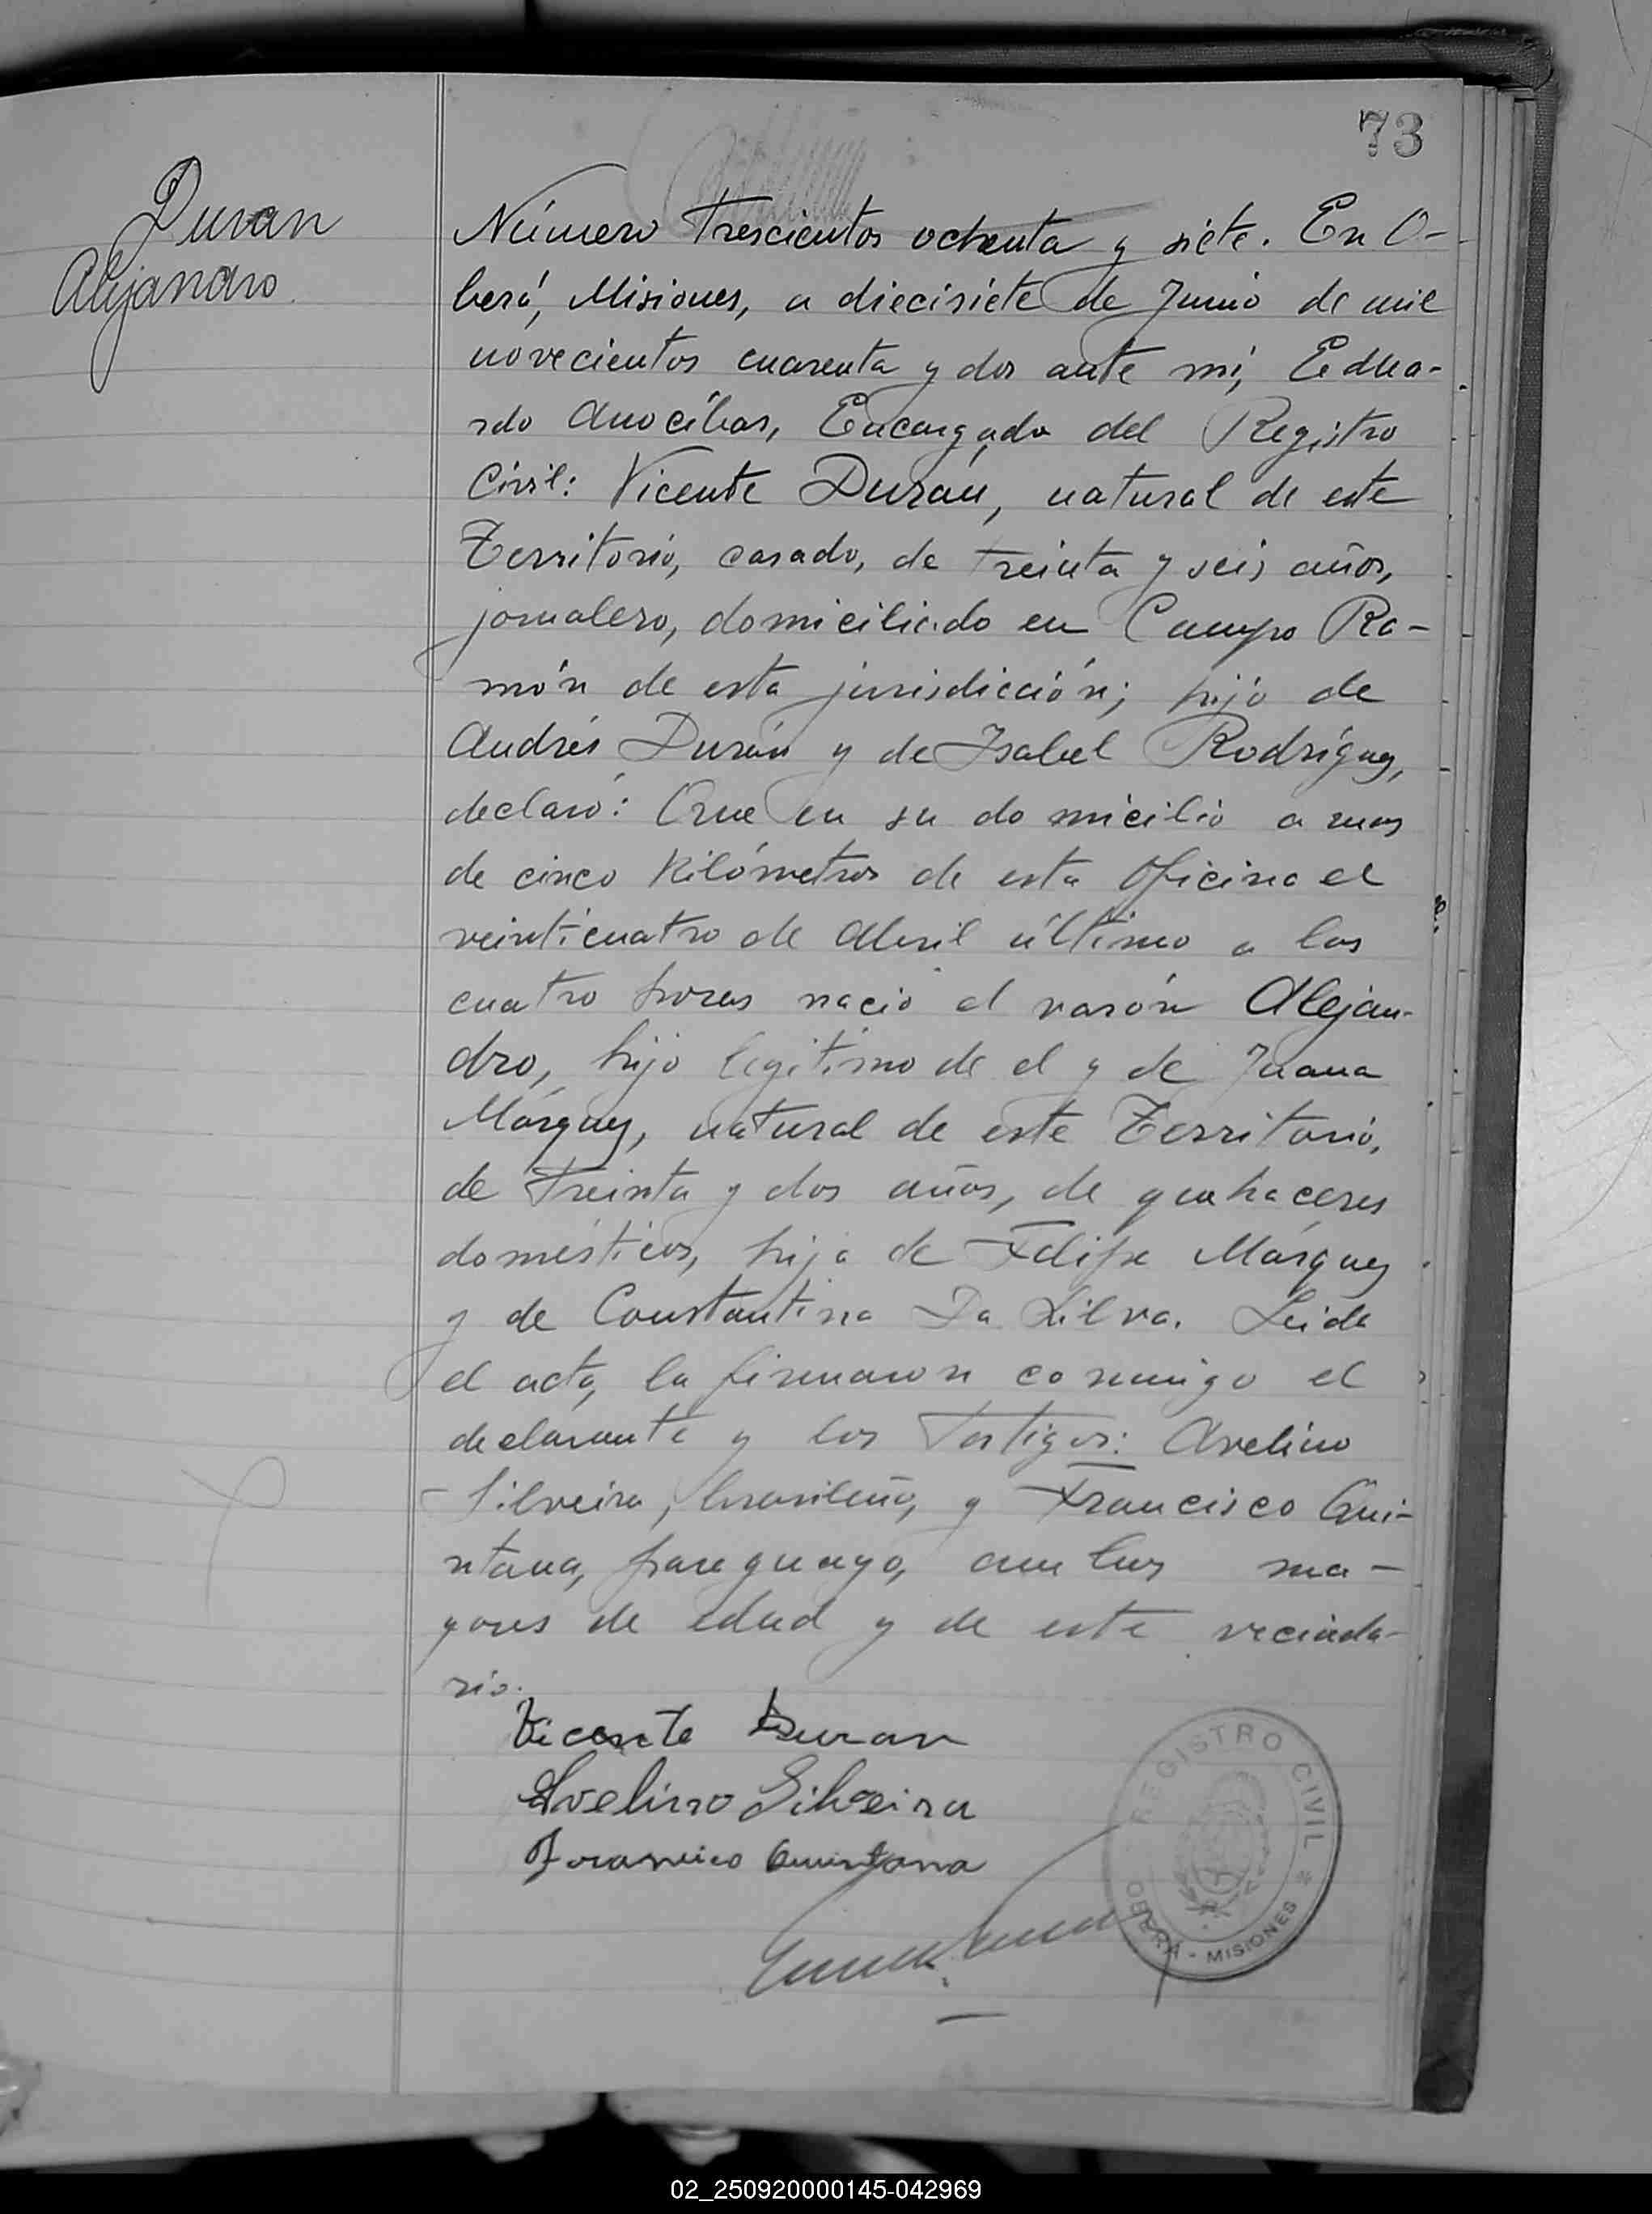 73
Duran
Alejandro
Número trescientos ochenta y siete. En O-
berá, Misiones, a diecisiete de Junio de mil
novecientos cuarenta y dos ante mí, Edua-
rdo Anocíbar, Encargado del Registro
Civil: Vicente Durán, natural de este
Territorio, casado, de treinta y seis años,
jornalero, domiciliado en Campo Ra-
món de esta jurisdicción; hijo de
Andrés Durán y de Isabel Rodríguez,
declaró: Que en su domicilio a mas
de cinco Kilómetros de esta Oficina el
veinticuatro de Abril último a las
cuatro horas nació el varón Alejan-
dro, hijo legítimo de el y de Juana
Márquez, natural de este Territorio,
de treinta y dos años, de quehaceres
domésticos, hija de Felipe Márquez
y de Constantina Da Silva. Leida
el acta, la firmaron conmigo el
declarante y los testigos: Avelino
Silveira, brasileño, y Francisco Qui-
ntana, paraguayo, ambos ma-
yores de edad y de este vecinda-
rio.
Vicente Duran
Avelino Silveira
Francisco Quintana
REGISTRO CIVIL
OBERÁ - MISIONES
02_250920000145-042969